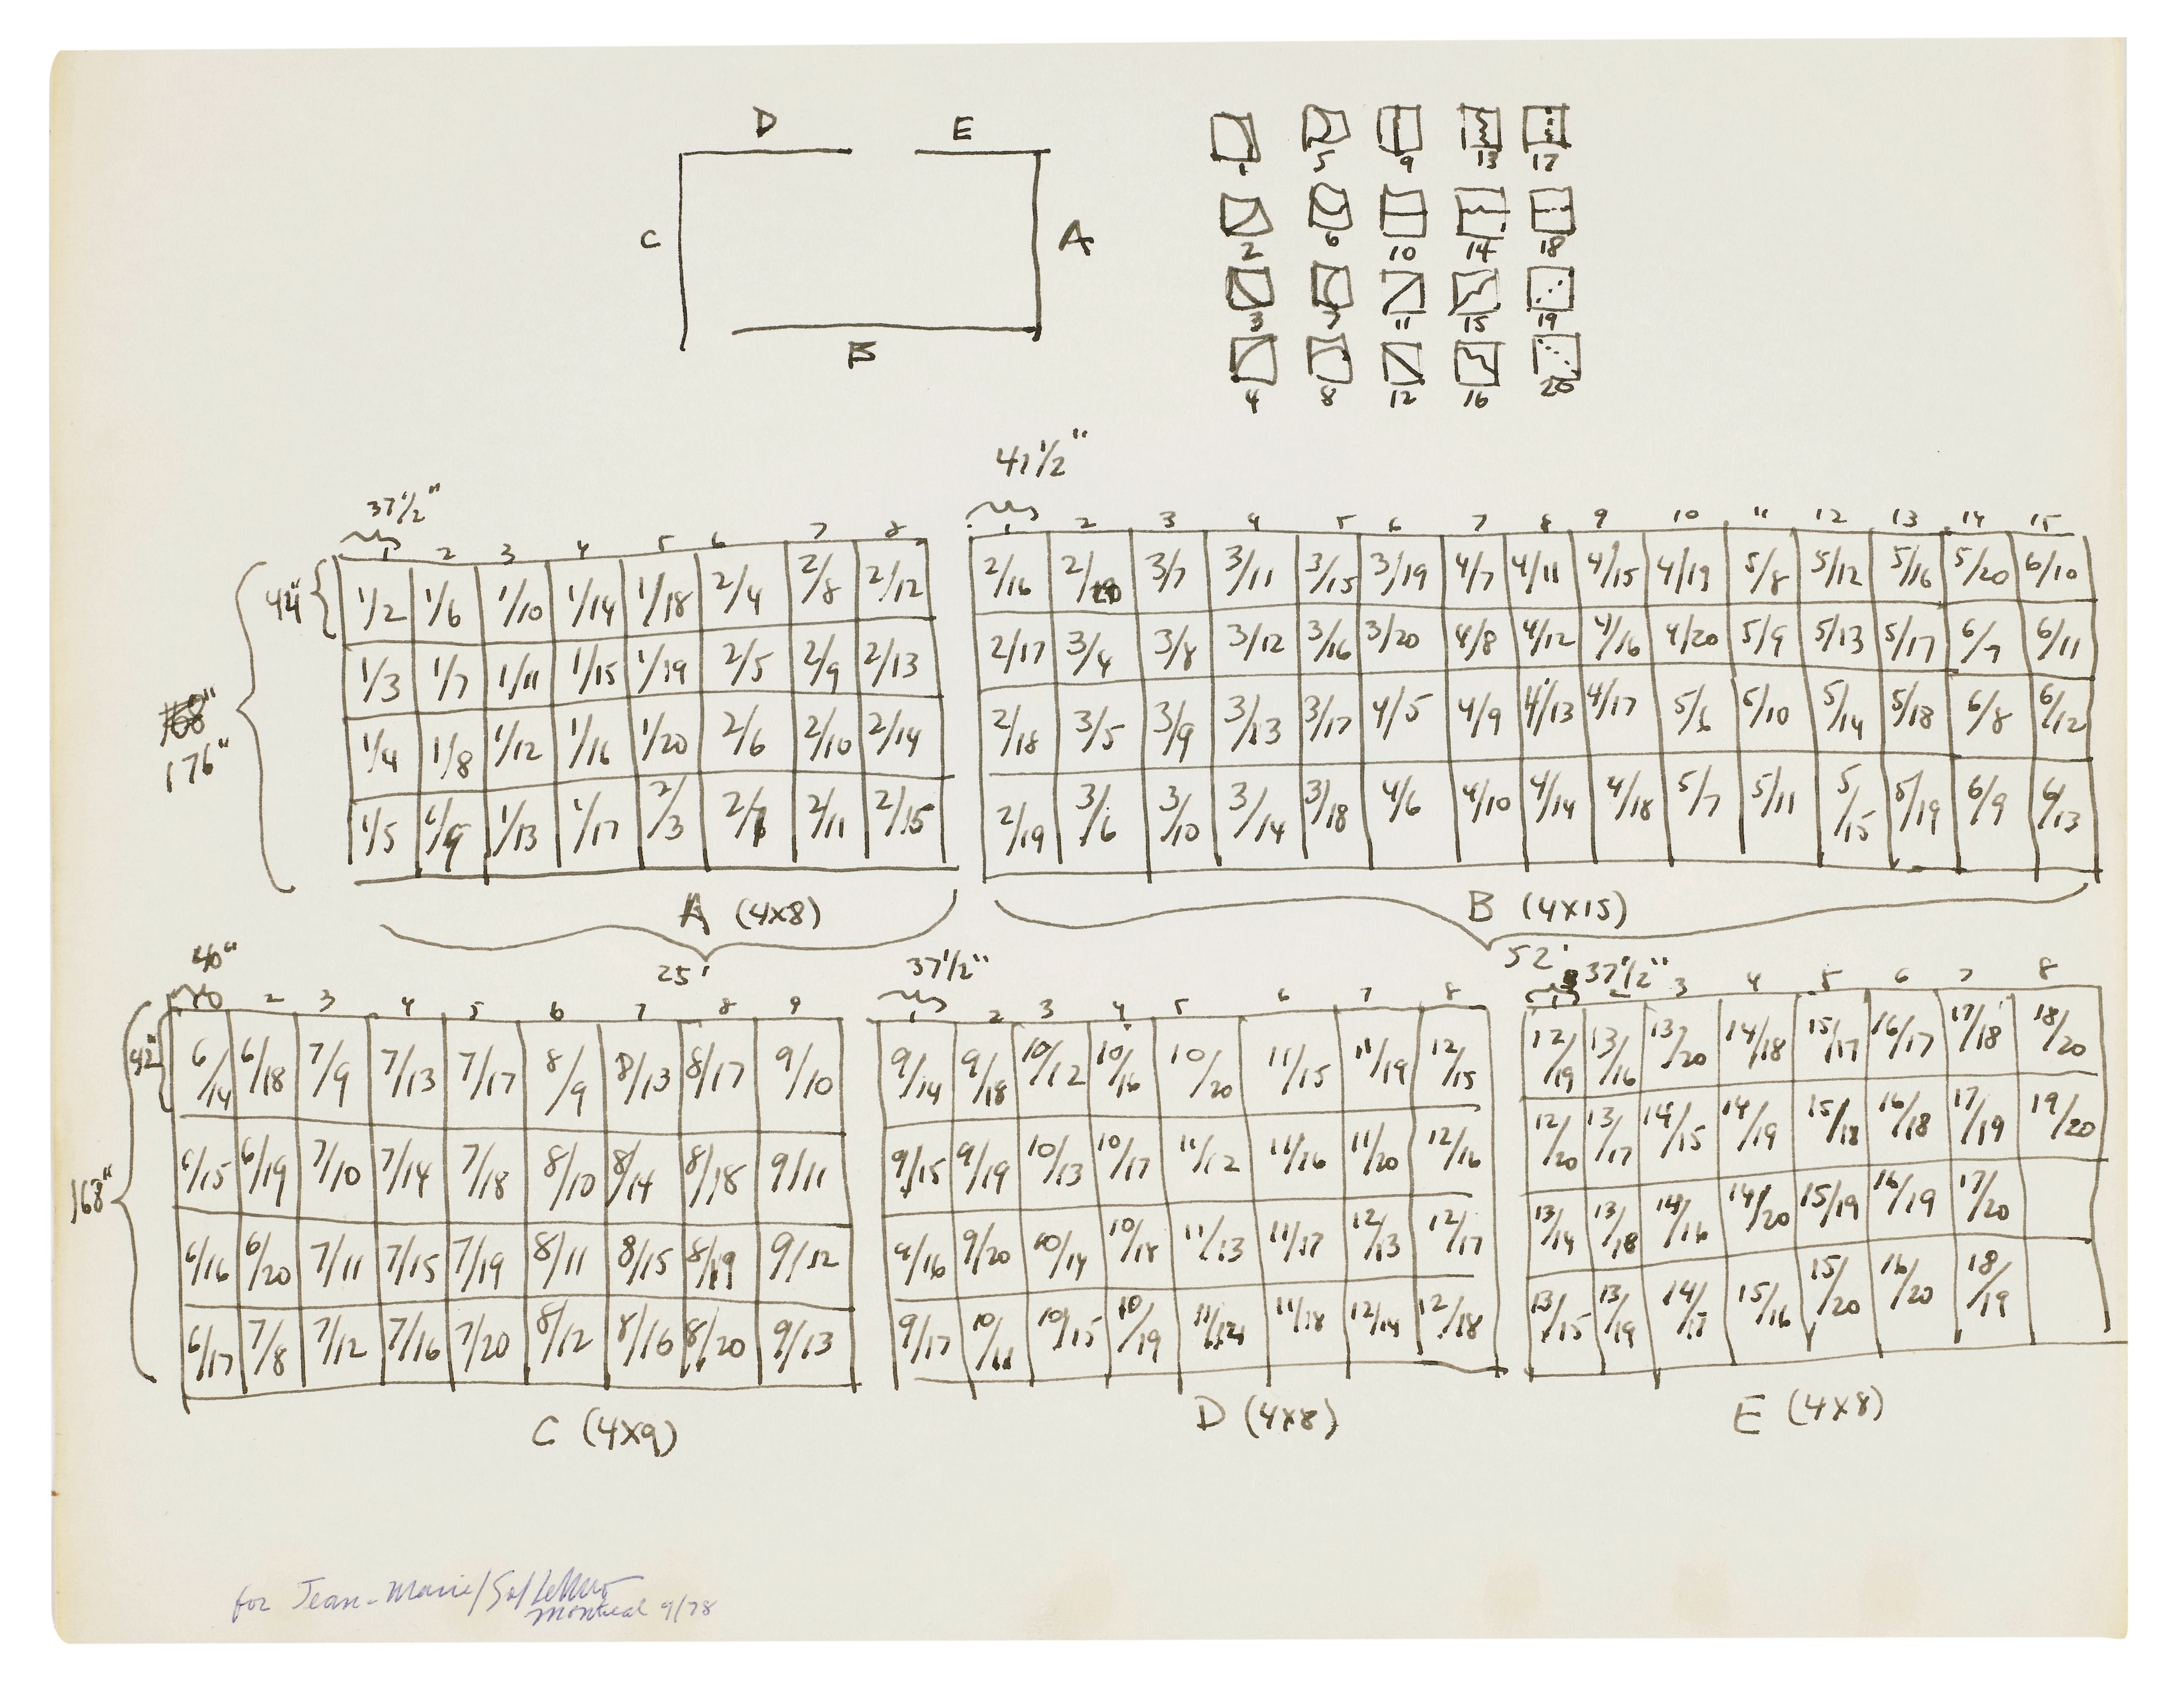 D E
C A
B
1 5 9 13 17
2 6 10 14 18
3 7 11 15 19
4 8 12 16 20
37 1/2" 41 1/2"
1 2 3 4 5 6 7 8 1 2 3 4 5 6 7 8 9 10 11 12 13 14 15
44" 1/2 1/6 1/10 1/14 1/18 2/4 2/8 2/12 2/16 2/20 3/7 3/11 3/15 3/19 4/7 4/11 4/15 4/19 5/8 5/12 5/16 5/20 6/10
1/3 1/7 1/11 1/15 1/19 2/5 2/9 2/13 2/17 3/4 3/8 3/12 3/16 3/20 4/8 4/12 4/16 4/20 5/9 5/13 5/17 6/7 6/11
168"
176" 1/4 1/8 1/12 1/16 1/20 2/6 2/10 2/14 2/18 3/5 3/9 3/13 3/17 4/5 4/9 4/13 4/17 5/6 5/10 5/14 5/18 6/8 6/12
1/5 1/9 1/13 1/17 2/3 2/7 2/11 2/15 2/19 3/6 3/10 3/14 3/18 4/6 4/10 4/14 4/18 5/7 5/11 5/15 5/19 6/9 6/13
A (4x8) B (4x15)
25' 52'
40" 37 1/2" 37 1/2"
2 3 4 5 6 7 8 9 1 2 3 4 5 6 7 8 1 2 3 4 5 6 7 8
42" 6/14 6/18 7/9 7/13 7/17 8/9 8/13 8/17 9/10 9/14 9/18 10/12 10/16 10/20 11/15 11/19 12/15 12/19 13/16 13/20 14/18 15/17 16/17 17/18 18/20
168" 6/15 6/19 7/10 7/14 7/18 8/10 8/14 8/18 9/11 9/15 9/19 10/13 10/17 11/12 11/16 11/20 12/16 12/20 13/17 14/15 14/19 15/18 16/18 17/19 19/20
6/16 6/20 7/11 7/15 7/19 8/11 8/15 8/19 9/12 9/16 9/20 10/14 10/18 11/13 11/17 12/13 12/17 13/14 13/18 14/16 14/20 15/19 16/19 17/20
6/17 7/8 7/12 7/16 7/20 8/12 8/16 8/20 9/13 9/17 10/11 10/15 10/19 11/14 11/18 12/14 12/18 13/15 13/19 14/17 15/16 15/20 16/20 18/19
C (4x9) D (4x8) E (4x8)
for Jean-Marie/Sol LeWitt
Montreal 9/78